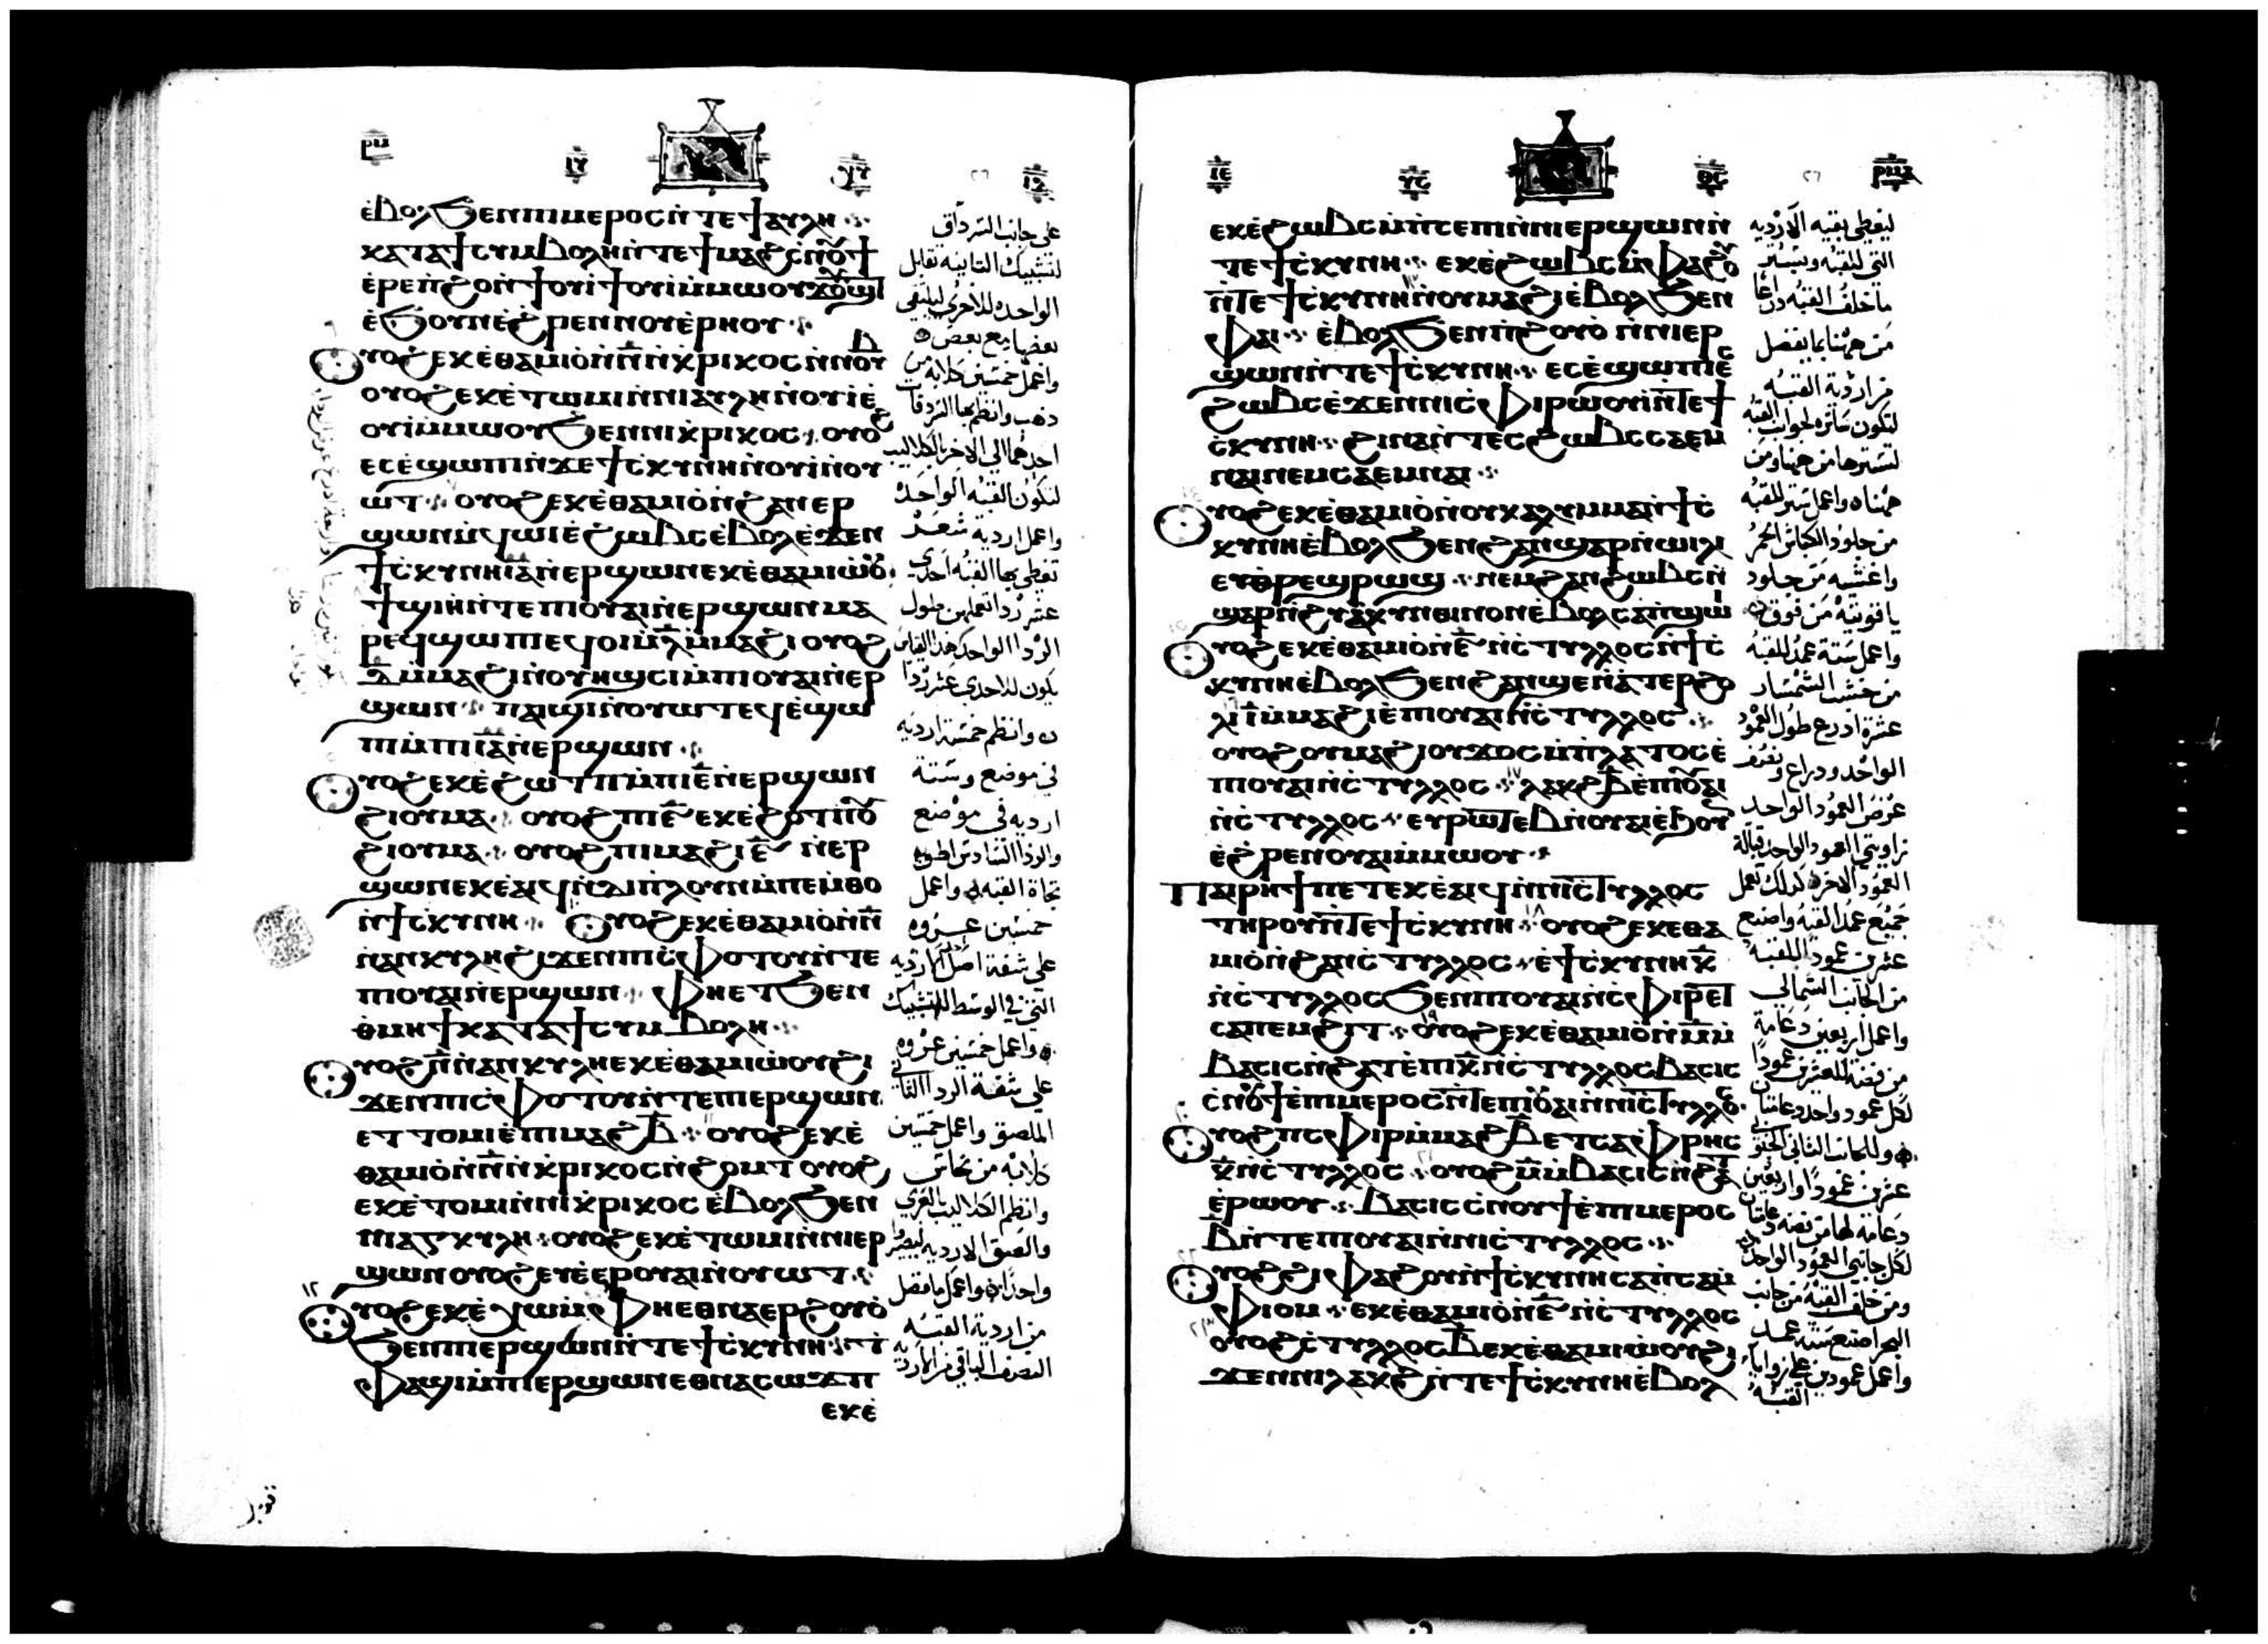 ⲉⲃⲟⲗϧⲉⲛⲡⲓⲙⲉⲣⲟⲥⲛ̀ⲧⲉϯⲁⲩⲗⲏ
ⲕⲁⲧⲁϯⲥⲩⲙⲃⲟⲗⲏⲛ̀ⲧⲉϯⲙⲁϩⲥ̀ⲛⲟⲩϯ
ⲉ̀ⲣⲉⲛ̀ϩⲟⲛ̀ϯⲟⲩⲓ̀ϯⲟⲩⲓ̀ⲙ̀ⲙⲱⲟⲩ
ⲉ̀ϧⲟⲩⲛⲉ̀ϩⲣⲉⲛⲛⲟⲩⲉ̀ⲣⲏⲟⲩ
ⲟⲩⲟϩⲉⲕⲉ̀ⲑⲁⲙⲓⲟ̀ⲛ̀ⲛ̅ⲛ̀ⲭⲣⲓⲕⲟⲥⲛ̀ⲛⲟⲩⲃ
ⲟⲩⲟϩⲉⲕⲉ̀ⲧⲱⲙⲓⲛ̀ⲛⲓⲁⲩⲗⲏⲛ̀ⲟⲩⲓ̀ⲉ̀
ⲟⲩⲓ̀ⲙ̀ⲙⲱⲟⲩϧⲉⲛⲛⲓⲭⲣⲓⲕⲟⲥ ⲟⲩⲟϩ
ⲉⲥⲉ̀ϣⲱⲡⲓⲛ̀ϫⲉϯⲥ̀ⲕⲩⲛⲏⲛ̀ⲟⲩⲓ̀ⲛ̀ⲟⲩ
ⲱⲧ ⲟⲩⲟϩⲉⲕⲉ̀ⲑⲁⲙⲓⲟ̀ⲛ̀ϩⲁⲛⲉⲣ
ϣⲱⲛⲙ̀ϥⲱⲓⲉ̀ϩⲱⲃⲥⲉ̀ⲃⲟⲗⲉ̀ϫⲉⲛ
ϯⲥ̀ⲕⲩⲛⲏⲓ̅ⲁ̅ⲛ̀ⲉⲣϣⲱⲛⲉⲕⲉ̀ⲑⲁⲙⲓⲱⲟⲩ
ϯϣⲓⲏⲛ̀ⲧⲉⲡⲓⲟⲩⲁⲓⲛ̀ⲉⲣϣⲱⲛⲙⲁ
ⲣⲉϥϣⲱⲡⲉϥⲟⲓⲙ̀ⲗ̅ⲙ̀ⲙⲁϩⲓ ⲟⲩⲟϩ
ⲇ̅ⲙ̀ⲙⲁϩⲓⲛ̀ⲟⲩⲏϣⲥⲓⲙ̀ⲡⲓⲟⲩⲁⲓⲛ̀ⲉⲣ
ϣⲱⲛ ⲡⲁⲓϣⲓⲛ̀ⲟⲩⲱⲧⲉϥⲉ̀ϣⲱ
ⲡⲓⲙ̀ⲡⲓⲓ̅ⲁ̅ⲛ̀ⲉⲣϣⲱⲛ
ⲟⲩⲟϩⲉⲕⲉ̀ϩⲱⲧⲡⲙ̀ⲡⲓⲉ̅ⲛ̀ⲉⲣϣⲱⲛ
ϩⲓⲟⲩⲙⲁ ⲟⲩⲟϩⲡⲓⲋ̅ ⲉⲕⲉ̀ϩⲟⲧⲡⲟⲩ
ϩⲓⲟⲩⲙⲁ ⲟⲩⲟϩⲡⲓⲙⲁϩⲋ̅ ⲛ̀ⲉⲣ
ϣⲱⲛⲉⲕⲉ̀ⲁⲓϥⲛ̀ⲇⲓⲡⲗⲟⲩⲛⲙ̀ⲡⲉⲙ̀ⲑⲟ
ⲛ̀ϯⲥ̀ⲕⲩⲛⲏ ⲟⲩⲟϩⲉⲕⲉ̀ⲑⲁⲙⲓⲟ̀ⲛ̀ⲛ̅
ⲛ̀ⲁⲛⲕⲩⲗⲏϩⲓϫⲉⲛⲡⲓⲥ̀ⲫⲟⲧⲟⲩⲛ̀ⲧⲉ
ⲡⲓⲟⲩⲁⲓⲛ̀ⲉⲣϣⲱⲛ ⲫⲏⲉⲧϧⲉⲛ
ⲑⲙⲏϯⲕⲁⲧⲁϯⲥⲩⲙⲃⲟⲗⲏ
ⲟⲩⲟϩⲛ̅ⲛ̀ⲁⲛⲕⲩⲗⲏⲉⲕⲉ̀ⲑⲁⲙⲓⲱⲟⲩϩⲓ
ϫⲉⲛⲡⲓⲥ̀ⲫⲟⲧⲟⲩⲛ̀ⲧⲉⲡⲓⲉⲣϣⲱⲛ
ⲉⲧⲧⲟⲙⲓⲉ̀ⲡⲓⲙⲁϩⲃ̅ ⲟⲩⲟϩⲉⲕⲉ̀
ⲑⲁⲙⲓⲟ̀ⲛ̀ⲛ̅ⲛ̀ⲭⲣⲓⲕⲟⲥⲛ̀ϩⲟⲙⲧ ⲟⲩⲟϩ
ⲉⲕⲉ̀ⲧⲟⲙⲓⲛ̀ⲛⲓⲭⲣⲓⲕⲟⲥⲉ̀ⲃⲟⲗϧⲉⲛ
ⲛⲓⲁⲅⲕⲩⲗⲏ ⲟⲩⲟϩⲉⲕⲉ̀ⲧⲱⲙⲓⲛ̀ⲛⲓⲉⲣ
ϣⲱⲛⲟⲩⲟϩⲉⲩⲉ̀ⲉⲣⲟⲩⲁⲓⲛ̀ⲟⲩⲱⲧ
ⲟⲩⲟϩⲉⲕⲉ̀ⲭⲱⲙ̀ⲫⲏⲉⲑⲛⲁⲉⲣϩⲟⲩⲟ̀
ϧⲉⲛⲛⲓⲉⲣϣⲱⲛⲛ̀ⲧⲉϯⲥ̀ⲕⲩⲛⲏ ⲧ̀
ⲫⲁϣⲓⲙ̀ⲡⲓⲉⲣϣⲱⲛⲉⲑⲛⲁⲥⲱϫⲡ
ⲉⲕⲉ̀
على جانب السرداق
لتشبيك الثانيه تقابل
الواحده للاخرى ليلتقى
بعضها مع بعض
واعمل خمسين كلابة من
ذهب وانظم بها السردقات
لتكون القبه الواحده
واعمل اردية شعر
تغطى بها القبه احدى
عشر ردا تعملهن طول
يكون للاحدى عشر ردا
وانظم خمسة ارديه
فى موضع وستة
ارديه فى موضع
تجاة القبه واعمل
خمسين عروه
التى فى الوسط للتشبيك
واعمل خمسين عروه
على شفة الردا الثانى
الملصق واعمل خمسين
كلابه من نحاس
وانظم الكلاليب بالعرى
من اردية القبه
النصف الباقى من الاردية
ⲉⲕⲉ̀ϩⲱⲃⲥⲙ̀ⲡⲥⲉⲡⲓⲛ̀ⲛⲓⲉⲣϣⲱⲛⲛ̀
ⲧⲉϯⲥ̀ⲕⲩⲛⲏ ⲉⲕⲉ̀ϩⲱⲃⲥⲙ̀ⲫⲁϩⲟⲩ
ⲛ̀ⲧⲉϯⲥ̀ⲕⲩⲛⲏⲛ̀ⲟⲩⲙⲁϩⲓⲉ̀ⲃⲟⲗϧⲉⲛ
ⲫⲁⲓ ⲉ̀ⲃⲟⲗϧⲉⲛⲡ̀ϩⲟⲩⲟ̀ⲛ̀ⲛⲓⲉⲣ
ϣⲱⲛⲛ̀ⲧⲉϯⲥ̀ⲕⲩⲛⲏ ⲉⲥⲉ̀ϣⲱⲡⲓⲉⲥ
ϩⲱⲃⲥⲉ̀ϫⲉⲛⲛⲓⲥ̀ⲫⲓⲣⲱⲟⲩⲓⲛ̀ⲧⲉϯ
ⲥ̀ⲕⲩⲛⲏ ϩⲓⲛⲁⲛ̀ⲧⲉⲥϩⲱⲃⲥⲥⲁⲉⲙ
ⲛⲁⲓⲛⲉⲙⲥⲁⲉⲙⲛⲁⲓ
ⲟⲩⲟϩⲉⲕⲉ̀ⲑⲁⲙⲓⲟ̀ⲛ̀ⲟⲩⲕⲁⲗⲩⲙⲙⲁⲛ̀ϯⲥ̀
ⲕⲩⲛⲏⲉ̀ⲃⲟⲗϧⲉⲛϩⲁⲛϣⲁⲣⲛ̀ⲱⲓⲗⲓ
ⲉⲩⲑⲣⲉϣⲣⲱϣ ⲛⲉⲙϩⲁⲛϩⲱⲃⲥⲛ̀
ϣⲁⲣⲛ̀ϩⲩⲁⲕⲩⲛⲑⲓⲛⲟⲛⲉ̀ⲃⲟⲗⲥⲁⲡ̀ϣⲱⲓ
ⲟⲩⲟϩⲉⲕⲉ̀ⲑⲁⲙⲓⲟ̀ⲛ̀ⲋ̅ ⲛ̀ⲥ̀ⲧⲩⲗⲗⲟⲥⲛ̀ϯⲥ̀
ⲕⲩⲛⲏⲉ̀ⲃⲟⲗϧⲉⲛϩⲁⲛϣⲉⲛ̀ⲁⲧⲉⲣϩⲟ
ⲗⲓ ⲓ̅ⲙ̀ⲙⲁϩⲓⲉ̀ⲡⲓⲟⲩⲁⲓⲛ̀ⲥ̀ⲧⲩⲗⲗⲟⲥ
ⲟⲩⲟϩⲟⲩⲙⲁϩⲓⲟⲩϫⲟⲥⲙ̀ⲡ̀ⲗⲁⲧⲟⲥⲉ̀
ⲡⲓⲟⲩⲁⲓⲛ̀ⲥ̀ⲧⲩⲗⲗⲟⲥ ⲗⲁⲕϩⲃ̅ⲉ̀ⲡⲓⲟⲩⲁⲓ
ⲛ̀ⲥ̀ⲧⲩⲗⲗⲟⲥ ⲉⲩⲣⲱⲧⲉⲃⲛ̀ⲟⲩⲁⲓⲉ̀ϧⲟⲩⲛ
ⲉ̀ϩⲣⲉⲛⲟⲩⲁⲓⲙ̀ⲙⲱⲟⲩ
ⲡⲁⲓⲣⲏϯⲡⲉⲧⲉⲕⲉ̀ⲁⲓϥⲛ̀ⲛⲓⲥ̀ⲧⲩⲗⲗⲟⲥ
ⲧⲏⲣⲟⲩⲛ̀ⲧⲉϯⲥ̀ⲕⲩⲛⲏ ⲟⲩⲟϩⲉⲕⲉⲑⲁ
ⲙⲓⲟ̀ⲛ̀ϩⲁⲛⲥ̀ⲧⲩⲗⲗⲟⲥ ⲉ̀ϯⲥ̀ⲕⲩⲛⲏⲕ̅
ⲛ̀ⲥ̀ⲧⲩⲗⲗⲟⲥϧⲉⲛⲡⲓⲟⲩⲁⲓⲛ̀ⲥ̀ⲫⲓⲣ ⲉⲧ
ⲥⲁⲡⲉⲙϩⲓⲧ ⲟⲩⲟϩⲉⲕⲉ̀ⲑⲁⲙⲓⲟ̀ⲛ̀ⲙ̅ⲙ̀
ⲃⲁⲥⲓⲥⲛ̀ϩⲁⲧⲉ̀ⲡⲓⲕ̅ⲛ̀ⲥ̀ⲧⲩⲗⲗⲟⲥⲃⲁⲥⲓⲥ
ⲥ̀ⲛⲟⲩϯⲉ̀ⲡⲓⲙⲉⲣⲟⲥⲛ̀ⲧⲉⲡⲓⲟⲩⲁⲓⲛ̀ⲛⲓⲥ̀ⲧⲩⲗⲗⲟⲥ
ⲟⲩⲟϩⲡⲓⲥ̀ⲫⲓⲣⲙ̀ⲙⲁϩⲃ̅ⲉⲧⲥⲁⲫⲣⲏⲥ
ⲕ̅ⲛ̀ⲥ̀ⲧⲩⲗⲗⲟⲥ ⲟⲩⲟϩⲙ̅ⲙ̀ⲃⲁⲥⲓⲥⲛ̀ϩⲁⲧ
ⲉ̀ⲣⲱⲟⲩ ⲃⲁⲥⲓⲥⲥ̀ⲛⲟⲩϯⲉ̀ⲡⲓⲙⲉⲣⲟⲥ
ⲃ̅ⲛ̀ⲧⲉⲡⲓⲟⲩⲁⲓⲛ̀ⲛⲓⲥ̀ⲧⲩⲗⲗⲟⲥ
ⲟⲩⲟϩϩⲓⲫⲁϩⲟⲩⲛ̀ϯⲥ̀ⲕⲩⲛⲏⲥⲁⲡ̀ⲥⲁⲙ̀
ⲫⲓⲟⲙ ⲉⲕⲉ̀ⲑⲁⲙⲓⲟ̀ⲛ̀ⲋ̅ ⲛ̀ⲥ̀ⲧⲩⲗⲗⲟⲥ
ⲟⲩⲟϩⲥ̀ⲧⲩⲗⲗⲟⲥⲃ̅ⲉⲕⲉ̀ⲑⲁⲙⲓⲱⲟⲩϩⲓ
ϫⲉⲛⲛⲓⲗⲁⲕϩⲛ̀ⲧⲉϯⲥ̀ⲕⲩⲛⲏⲉ̀ⲃⲟⲗ
ليغطى بقيه الارديه
التى للقبه ويستر
ما خلف القبه دراعا
من ههنا بما يفضل
من اردية القبه
لتكون ساتره لجوانب القبه
لتسترها من ههنا ومن
ههناه واعمل ستر للقبه
من جلود الكباش الحمر
واغشيه من جلود
ياقوتيه من فوق
واعمل ستة عمد للقبه
من خشب الشمشار
عشرة ادرع طول العمود
الواحد ودراع ونصف
عرض العمود الواحد
زاويتى العمود الواحد قبالة
العمود الاخر كدلك تعمل
جميع عمد القبه واصنع
عشرين عمودا للقبه
من الجانب الشمالى
واعمل اربعين دعامة
من فضه للعشرين عمودا
لكل عمود واحد دعامتان
عشرين عمودا واربعين
لكل جانبى العمود الواحد
ومن خلف القبه من جانب
البحر اصنع سته عمد
واعمل عمودين على زوايا
القبه